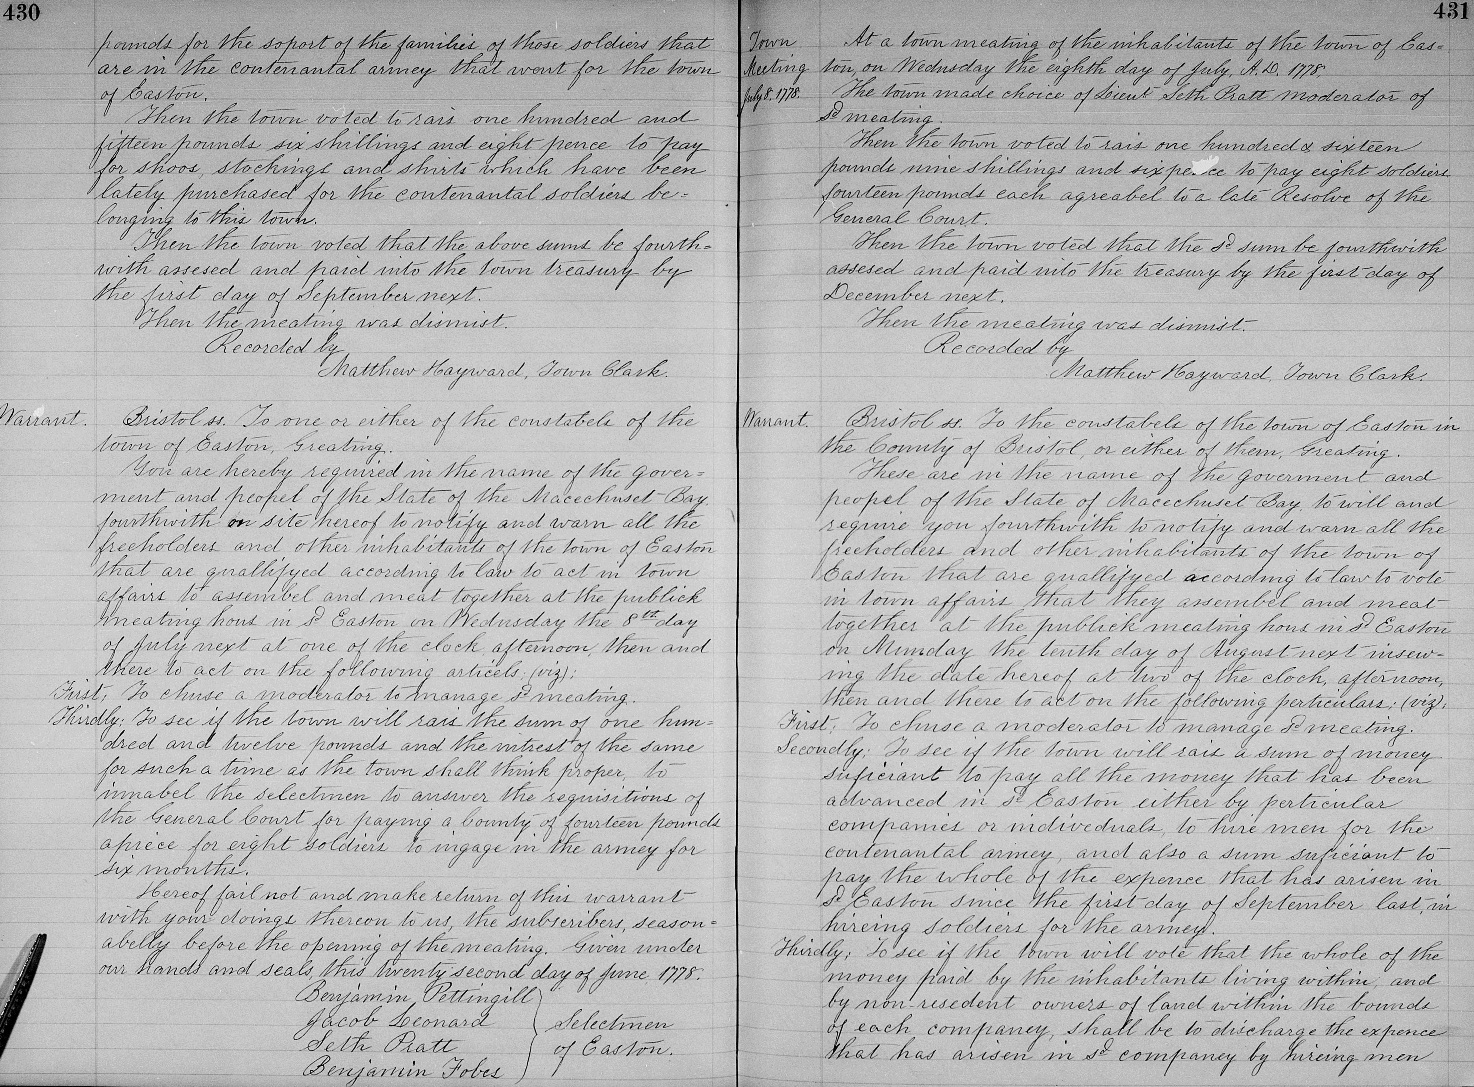 430
pounds for the soport of the families of those soldiers that
are in the contenantal armey that went for the town
of Easton.
Then the town voted to rais one hundred and
fifteen pounds six shillings and eight pence to pay
for shoos, stockings and shirts which have been
lately purchased for the contenantal soldiers be=
longing to this town.
Then the town voted that the above sums be fourth=
with assesed and paid into the town treasury by
the first day of September next.
Then the meating was dismist.
Recorded by
Matthew Hayward, Town Clark.
Warrant. Bristol ss. To one or either of the constabels of the
town of Easton, Greating.
You are hereby required in the name of the gover=
ment and peopel of the State of the Macechuset Bay
fourthwith on site hereof to notify and warn all the
freeholders and other inhabitants of the town of Easton
that are quallifyed according to law to act in town
affairs to assembel and meat together at the publick
meating hous in sd Easton on Wednsday the 8th day
of July next at one of the clock, afternoon, then and
there to act on the following articels; (viz);
First; To chuse a moderator to manage sd meating.
Thirdly; To see if the town will rais the sum of one hun=
dred and twelve pounds and the intrest of the same
for such a time as the town shall think proper, to
innabel the selectmen to answer the requisitions of
the General Court for paying a bounty of fourteen pounds
apiece for eight soldiers to ingage in the armey for
six months.
Hereof fail not and make return of this warrant
with your doings thereon to us, the subscribers, season=
abelly before the opening of the meating. Given under
our hands and seals, this twenty second day of June, 1778.
Benjamin Pettingill
Jacob Leonard
Seth Pratt
Benjamin Fobes
Selectmen
of Easton.
431
Town
Meeting
July 8. 1778.
At a town meating of the inhabitants of the town of Eas=
ton, on Wednsday the eighth day of July, A.D. 1778.
The town made choice of Lieut Seth Pratt moderator of
sd meating.
Then the town voted to rais one hundred & sixteen
pounds nine shillings and sixpence to pay eight soldiers
fourteen pounds each agreabel to a late Resolve of the
General Court.
Then the town voted that the sd sum be fourthwith
assesed and paid into the treasury by the first day of
December next.
Then the meating was dismist.
Recorded by
Matthew Hayward, Town Clark.
Warrant. Bristol ss. To the constabels of the town of Easton in
the County of Bristol, or either of them, Greating.
These are in the name of the goverment and
peopel of the State of Macechuset Bay, to will and
require you fourthwith to notify and warn all the
freeholders and other inhabitants of the town of
Easton that are quallifyed according to law to vote
in town affairs that they assembel and meat
together at the publick meating hous in sd Easton
on Munday the tenth day of August next insew-
ing the date hereof at two of the clock, afternoon,
then and there to act on the following perticulars; (viz);
First; To chuse a moderator to manage sd meating.
Secondly; To see if the town will rais a sum of money
suficiant to pay all the money that has been
advanced in sd Easton either by perticular
companies or indiveduals, to hire men for the
contenantal armey, and also a sum suficiant to
pay the whole of the expence that has arisen in
sd Easton since the first day of September last, in
hireing soldiers for the armey.
Thirdly; To see if the town will vote that the whole of the
money paid by the inhabitants living within, and
by non-resedent owners of land within the bounds
of each companey, shall be to discharge the expence
that has arisen in sd companey by hireing men